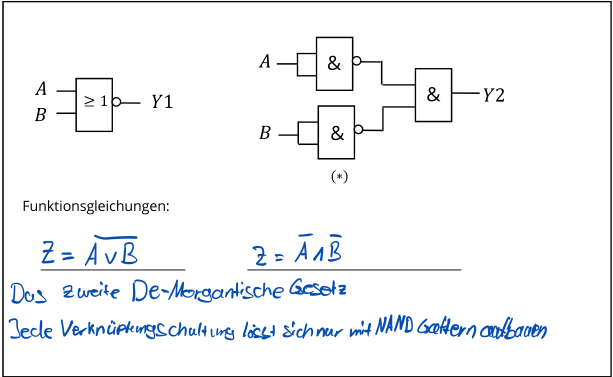 A
B
≥ 1
Y1
A
&
B
&
&
Y2
(*)
Funktionsgleichungen:
Z = \overline{A ∨ B}
Z = \overline{A} ∧ \overline{B}
Das zweite De-Morgantische Gesetz
Jede Verknüpfungsschaltung lässt sich nur mit NAND Gattern aufbauen